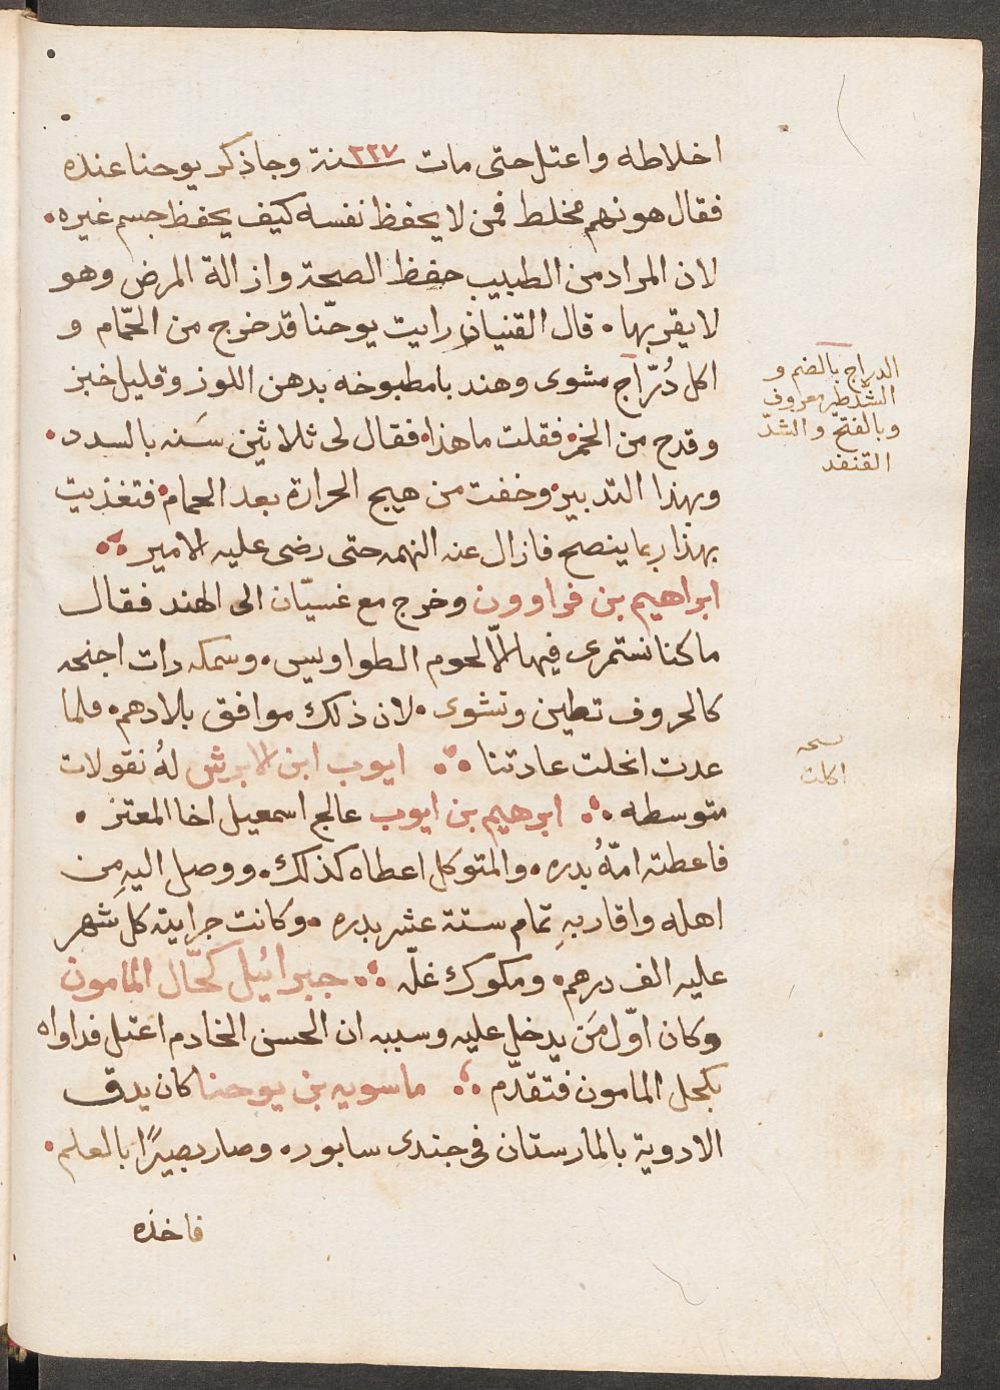 اخلاطه واعتل حتى مات سنة ٢٢٧ وجا ذكر يوحنا عنده
فقال هو نهم مخلط فمن لا يحفظ نفسه كيف يحفظ جسم غيره
لان المراد من الطبيب حفظ الصحة وازالة المرض وهو
لا يقربها قال القنيان رايت يوحنّا قد خرج من الحمّام و
اكل دُرّاج مشوى وهندبا مطبوخه بدهن اللوز وقليل خبز
وقدح من الخمر فقلت ما هذا فقال لى ثلاثين سَنه بالسدد
وبهذا التدبير وخفت من هيج الحرارة بعد الحمام فتغذيت
بهذا ربما ينصح فازال عنه التهمه حتى رضى عليه الامير
ابراهيم بن فراوون وخرج مع غسيّان الى الهند فقال
ما كنا نستمرى فيها الّا لحوم الطواويس وسمكه دات اجنحه
كالحروف تطين وتشوى لان ذلك موافق بلادهم فلما
عدت انحلت عادتنا ايوب ابن الابرش لهُ نقولات
متوسطه ابرهيم بن ايوب عالج اسمعيل اخا المعتز
فاعطته امّهُ بدره والمتوكل اعطاه كذلك ووصل اليهِ من
اهله واقاربهِ تمام ستة عشر بدره وكانت جرايته كل شهر
عليه الف درهم ومكوك غلّه جبرائيل كحّال المامون
وكان اوّل مَن يدخل عليه وسببه ان الحسن الخادم اعتل فداواه
بكحل المامون فتقدّم ماسويه بن يوحنا كان يدق
الادوية بالمارستان فى جندى سابوره وصار بصيرًا بالعلم
فاخذه
الدراج بالضم و
الشد طير معروف
وبالفتح والشدّ
القنفد
نسخه
اكلت